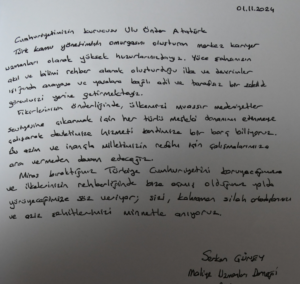 01.11.2024
Cumhuriyetimizin kurucusu Ulu Önder Atatürk
Türk kamu yönetiminde omurgasını oluşturan merkez kariyer
uzmanları olarak yüksek huzurlarınızdayız. Yüce şahsınızın
akıl ve bilimi rehber alarak oluşturduğu ilke ve devrimler
ışığında anayasa ve yasalara bağlı adil ve tarafsız bir şekilde
görevimizi yerine getirmekteyiz.
Fikirlerinizin önderliğinde, ülkemizi muasır medeniyetler
seviyesine çıkarmak için her türlü mesleki donanımı etmeye
çalışarak devletimize hizmeti kendimize bir borç biliyoruz.
Bu azim ve inançla milletimizin refahı için çalışmalarımıza
ara vermeden devam edeceğiz.
Miras bıraktığınız Türkiye Cumhuriyetini koruyacağımıza
ve ilkelerinizin rehberliğinde bize açmış olduğunuz yolda
yürüyeceğimize söz veriyor; sizi, kahraman silah arkadaşlarınızı
ve aziz şehitlerimizi minnetle anıyoruz.
Serkan GÜRSOY
Maliye Uzmanları Derneği